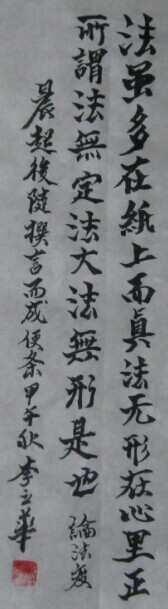 法虽多在紙上而真法无形在心里正
所謂法無定法大法無形是也 論法度
晨起後隨撰言而成便条甲午秋李立華